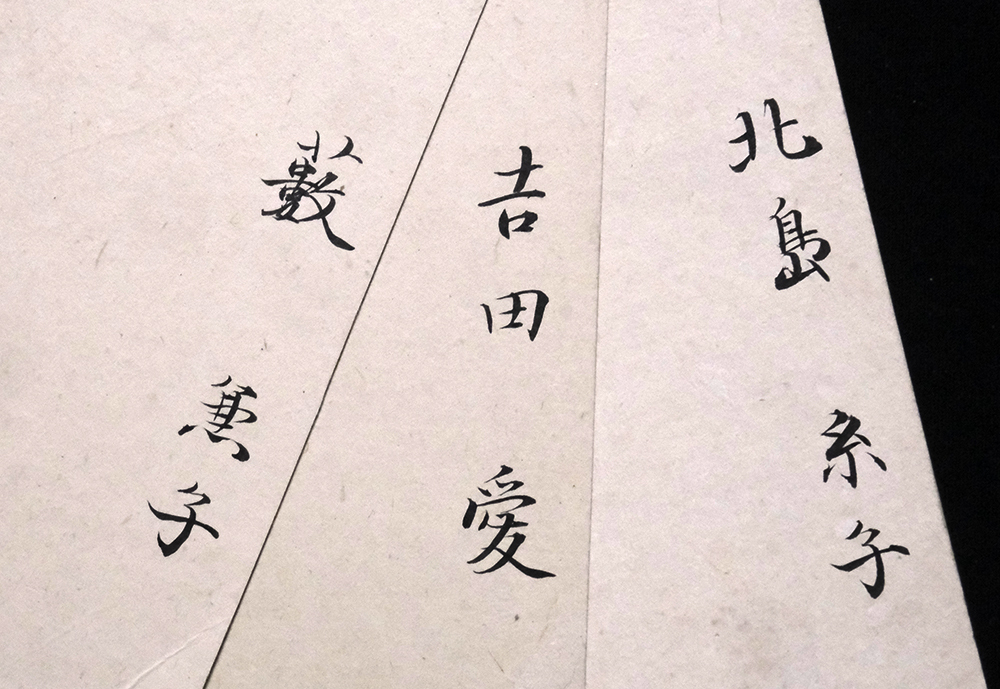 北島糸子
吉田愛
藪兼子